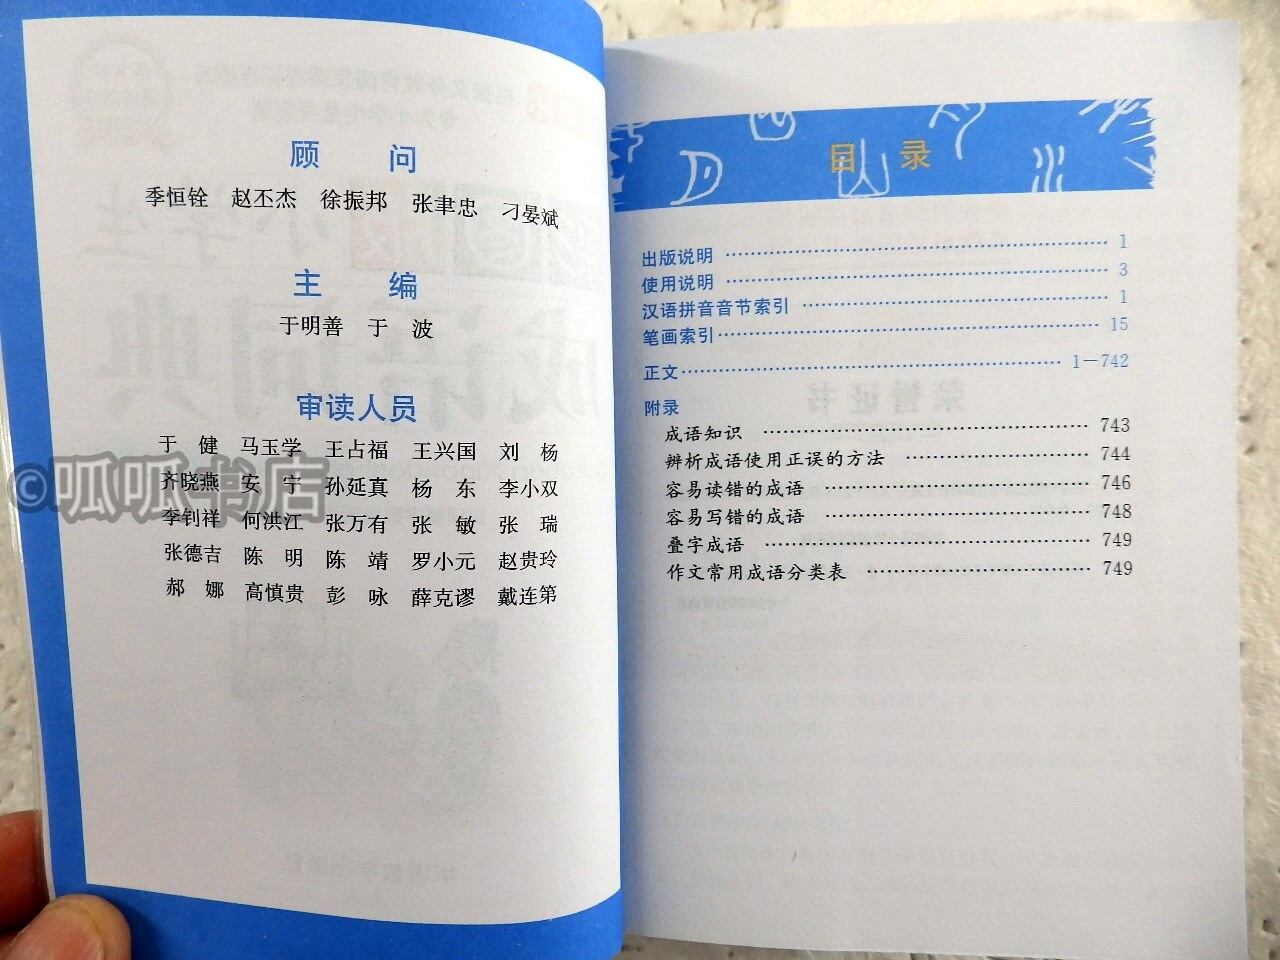 顾 问
季恒铨 赵丕杰 徐振邦 张聿忠 刁晏斌
主 编
于明善 于 波
审读人员
于 健 马玉学 王占福 王兴国 刘 杨
齐晓燕 安 宁 孙延真 杨 东 李小双
李钊祥 何洪江 张万有 张 敏 张 瑞
张德吉 陈 明 陈 靖 罗小元 赵贵玲
郝 娜 高慎贵 彭 咏 薛克谬 戴连第
©呱呱书店
目 录
出版说明 …… 1
使用说明 …… 3
汉语拼音音节索引 …… 1
笔画索引 …… 15
正文 …… 1—742
附录
成语知识 …… 743
辨析成语使用正误的方法 …… 744
容易读错的成语 …… 746
容易写错的成语 …… 748
叠字成语 …… 749
作文常用成语分类表 …… 749